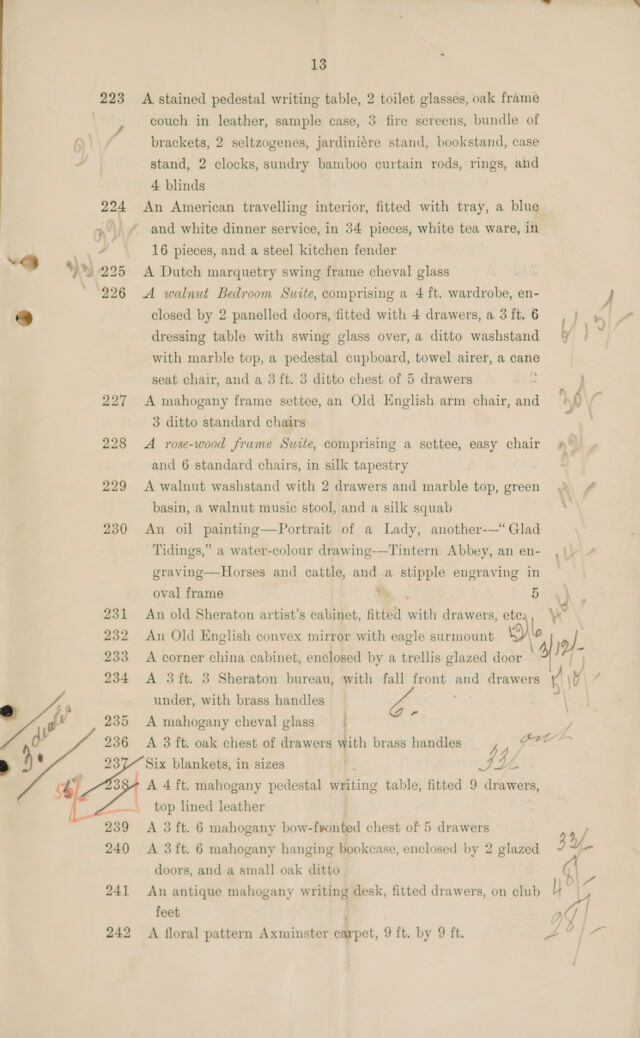 13
223 A stained pedestal writing table, 2 toilet glasses, oak frame
couch in leather, sample case, 3 fire screens, bundle of
brackets, 2 seltzogenes, jardinière stand, bookstand, case
stand, 2 clocks, sundry bamboo curtain rods, rings, and
4 blinds
224 An American travelling interior, fitted with tray, a blue
and white dinner service, in 34 pieces, white tea ware, in
16 pieces, and a steel kitchen fender
225 A Dutch marquetry swing frame cheval glass
226 A walnut Bedroom Suite, comprising a 4 ft. wardrobe, en-
closed by 2 panelled doors, fitted with 4 drawers, a 3 ft. 6
dressing table with swing glass over, a ditto washstand
with marble top, a pedestal cupboard, towel airer, a cane
seat chair, and a 3 ft. 3 ditto chest of 5 drawers
227 A mahogany frame settee, an Old English arm chair, and
3 ditto standard chairs
228 A rose-wood frame Suite, comprising a settee, easy chair
and 6 standard chairs, in silk tapestry
229 A walnut washstand with 2 drawers and marble top, green
basin, a walnut music stool, and a silk squab
230 An oil painting—Portrait of a Lady, another—“Glad
Tidings,” a water-colour drawing—Tintern Abbey, an en-
graving—Horses and cattle, and a stipple engraving in
oval frame 5
231 An old Sheraton artist’s cabinet, fitted with drawers, etc.
232 An Old English convex mirror with eagle surmount
233 A corner china cabinet, enclosed by a trellis glazed door
234 A 3 ft. 3 Sheraton bureau, with fall front and drawers
under, with brass handles
6.
235 A mahogany cheval glass
236 A 3 ft. oak chest of drawers with brass handles
33/-
237 Six blankets, in sizes
238 A 4 ft. mahogany pedestal writing table, fitted 9 drawers,
top lined leather
239 A 3 ft. 6 mahogany bow-fronted chest of 5 drawers
240 A 3 ft. 6 mahogany hanging bookcase, enclosed by 2 glazed 33/-
doors, and a small oak ditto
241 An antique mahogany writing desk, fitted drawers, on club 48/-
feet 28/-
242 A floral pattern Axminster carpet, 9 ft. by 9 ft.